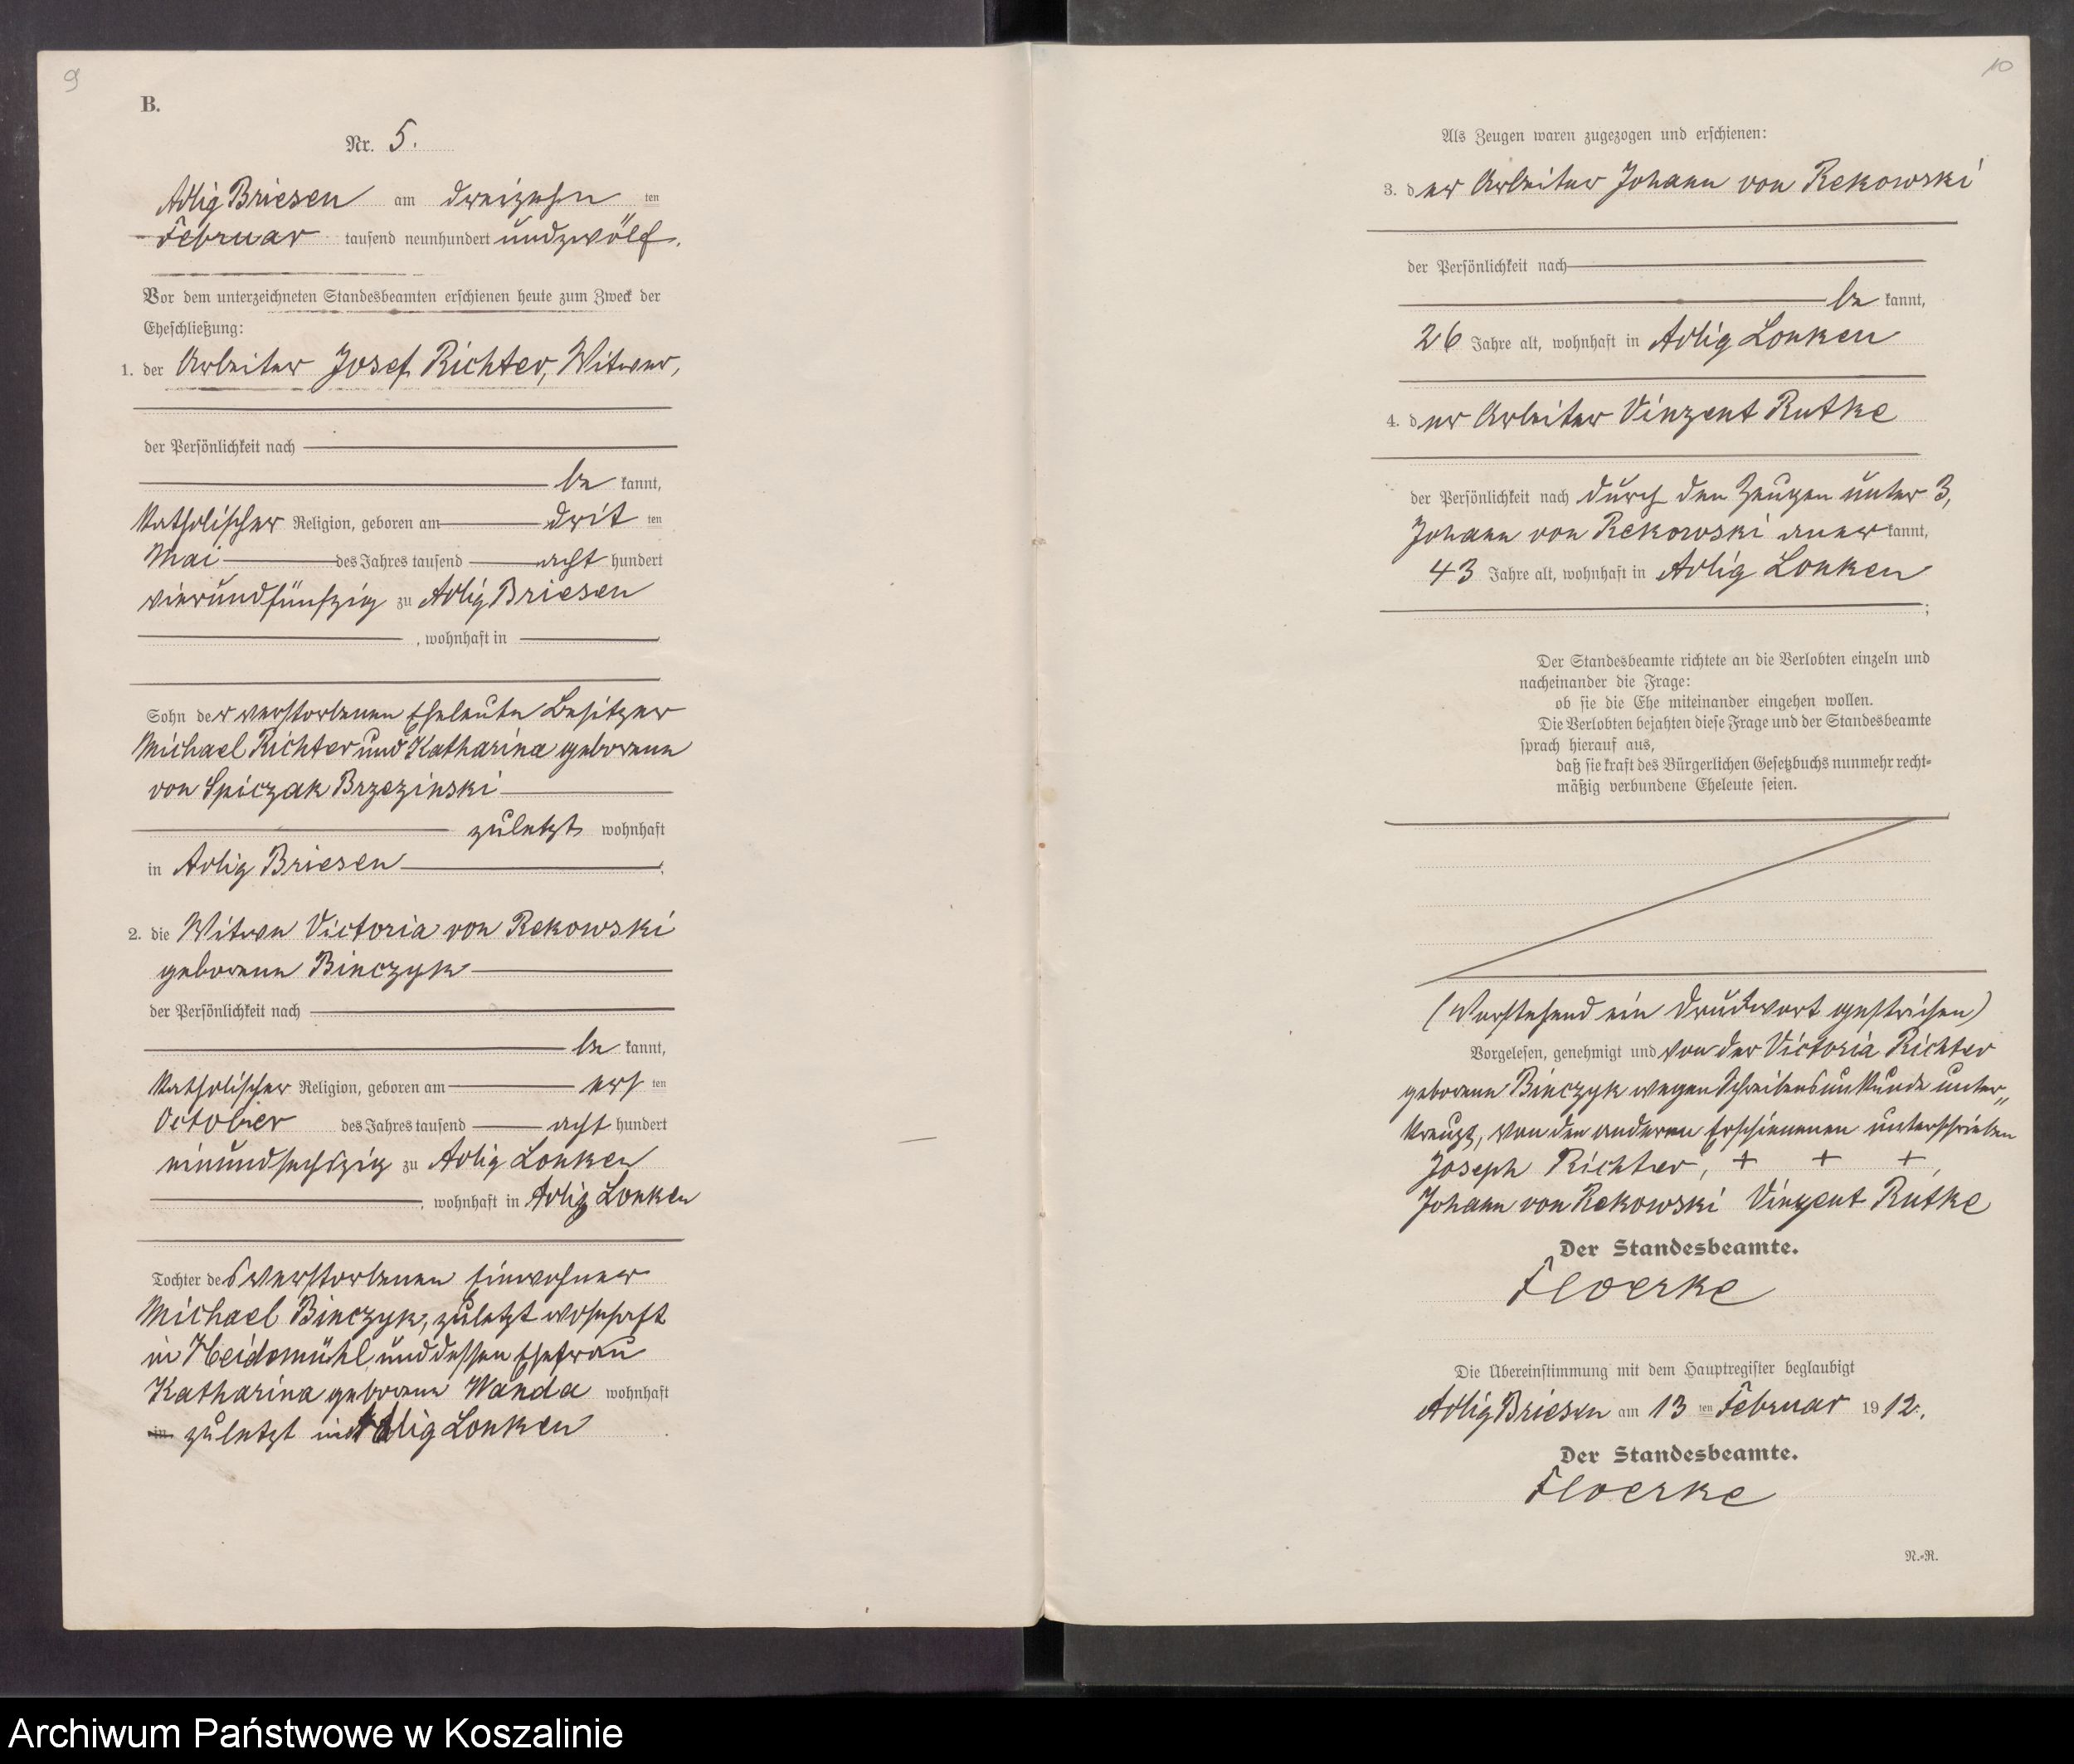 9
B.
Nr. 5.
Adlig Briesen am dreizehn ten
Februar tausend neunhundert undzwölf.
Vor dem unterzeichneten Standesbeamten erschienen heute zum Zweck der
Eheschließung:
1. der Arbeiter Josef Richter, Witwer,
der Persönlichkeit nach
be kannt,
katholischer Religion, geboren am drit ten
Mai des Jahres tausend acht hundert
vierundfünfzig zu Adlig Briesen
, wohnhaft in
Sohn der verstorbenen Eheleute Besitzer
Michael Richter und Katharina geborene
von Spiczak Brzezinski
zuletzt wohnhaft
in Adlig Briesen
2. die Witwe Victoria von Rekowski
geborene Binczyk
der Persönlichkeit nach
be kannt,
katholischer Religion, geboren am ers ten
October des Jahres tausend acht hundert
einundsechszig zu Adlig Lonken
, wohnhaft in Adlig Lonken
Tochter des verstorbenen Einwohner
Michael Binczyk, zuletzt wohnhaft
in Heidemühl und dessen Ehefrau
Katharina geborene Wanda wohnhaft
in zuletzt in Adlig Lonken
10
Als Zeugen waren zugezogen und erschienen:
3. der Arbeiter Johann von Rekowski
der Persönlichkeit nach
be kannt,
26 Jahre alt, wohnhaft in Adlig Lonken
4. der Arbeiter Vinzent Rutke
der Persönlichkeit nach durch den Zeugen unter 3,
Johann von Rekowski aner kannt,
43 Jahre alt, wohnhaft in Adlig Lonken
;
Der Standesbeamte richtete an die Verlobten einzeln und
nacheinander die Frage:
ob sie die Ehe miteinander eingehen wollen.
Die Verlobten bejahten diese Frage und der Standesbeamte
sprach hierauf aus,
daß sie kraft des Bürgerlichen Gesetzbuchs nunmehr recht-
mäßig verbundene Eheleute seien.
(Vorstehend ein Druckwort gestrichen)
Vorgelesen, genehmigt und von der Victoria Richter
geborene Binczyk wegen Schreibensunkunde unter„
kreuzt, von den anderen Erschienenen unterschrieben
Joseph Richter, + + +,
Johann von Rekowski Vinzent Rutke
Der Standesbeamte.
Floerke
Die Übereinstimmung mit dem Hauptregister beglaubigt
Adlig Briesen am 13 ten Februar 19 12.
Der Standesbeamte.
Floerke
N.-R.
Archiwum Państwowe w Koszalinie